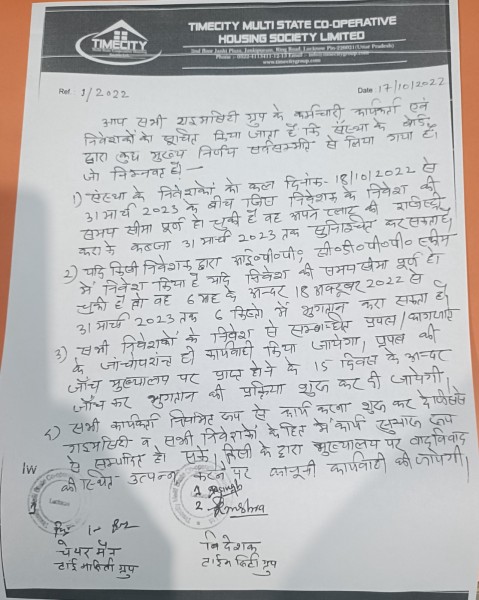 TIMECITY
TIMECITY MULTI STATE CO-OPERATIVE
HOUSING SOCIETY LIMITED
2nd floor Janki Plaza, Jankipuram, Ring Road Lucknow Pin-226021(Uttar Pradesh)
Ref. 1/2022 Date : 17/10/2022
आप सभी टाइमसिटी ग्रुप के कर्मचारी कार्यकर्ता एवं
निवेशकों को सूचित किया जाता है कि संस्था के बोर्ड
द्वारा कुछ मुख्य निर्णय सर्वसम्मति से लिया गया है।
जो निम्नवत है।—
1) संस्था के निवेशकों को कल दिनांक- 18/10/2022 से
31 मार्च 2023 के बीच जिस निवेशक के निवेश की
समय सीमा पूर्ण हो चुकी है वह अपने प्लाट की रजिस्ट्री
करा के कब्जा 31 मार्च 2023 तक सुनिश्चित कर सकता है,
2) यदि किसी निवेशक द्वारा आई०पी०पी०, सी०डी०पी०पी० स्कीम
में निवेश किया है यदि निवेश की समय सीमा पूर्ण हो
चुकी है तो वह 6 माह के अन्दर 18 अक्टूबर 2022 से
31 मार्च 2023 तक 6 किश्तों में भुगतान करा सकता है।
3) सभी निवेशकों के निवेश से सम्बन्धित प्रपत्र/कागजात
के जाँचोपरांत ही कार्यवाही किया जायेगा, प्रपत्र की
जाँच मुख्यालय पर प्राप्त होने के 15 दिवस के अन्दर
जाँच कर भुगतान की प्रक्रिया शुरू कर दी जायेगी।
4) सभी कार्यकर्ता नियमित रूप से कार्य करना शुरू कर दे जिससे
टाइमसिटी व सभी निवेशकों के हित में कार्य सुचारू रूप
से सम्पादित हो सके। किसी के द्वारा मुख्यालय पर वाद विवाद
की स्थिति उत्पन्न करने पर कानूनी कार्यवाही की जायेगी।
1
2
चेयरमैन
टाईम सिटी ग्रुप
निदेशक
टाईम सिटी ग्रुप